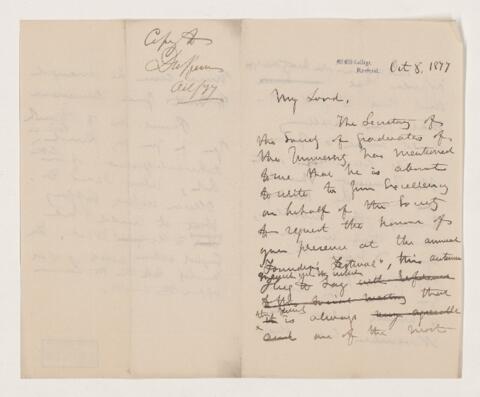 Copy to
Oct/77
McGill College,
Montreal.
Oct 8, 1877
My Lord,
The Secretary of
the Society of Graduates of
the University has mentioned
to me that he is about
to write to your Excellency
on behalf of the Society
to request the honour of
your presence at the annual
"Founder's Festival", this autumn
I beg to say with reference
to this social meeting that
it is always very agreeable
and one of the most